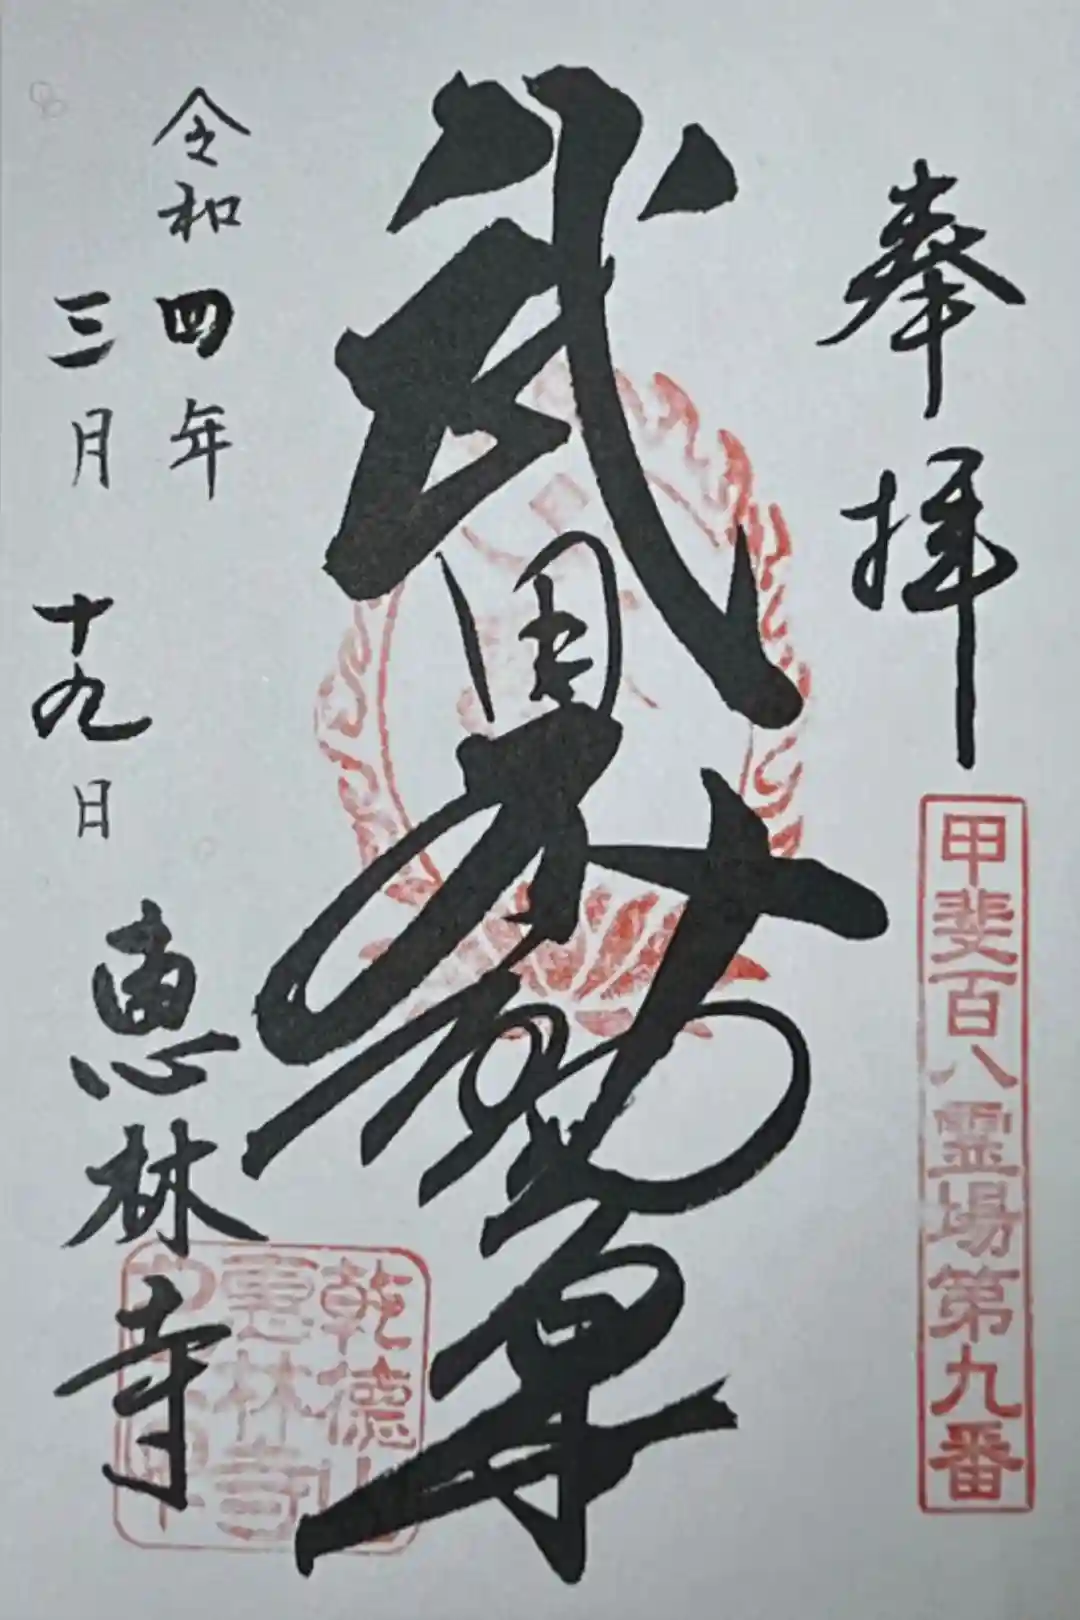 奉拝
甲斐百八霊場第九番
武田不動尊
令和四年
三月十九日
恵林寺
乾徳山
恵林寺